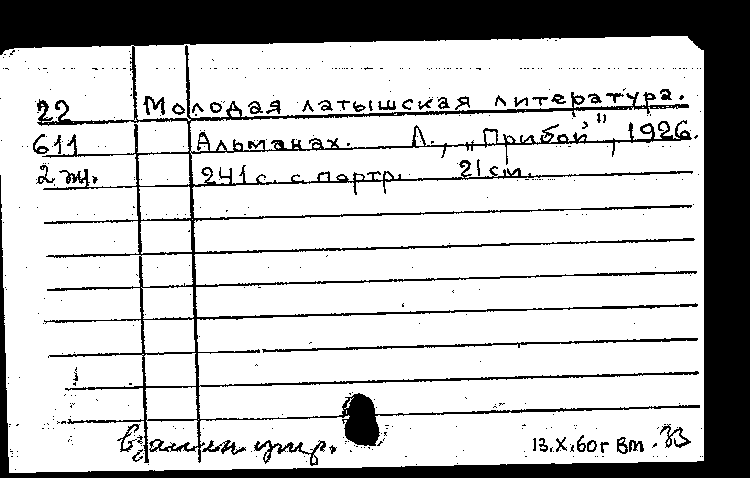 22 Молодая латышская литература.
611 Альманах. Л., „Прибой", 1926.
2 эк. 241 с. с портр. 21 см.
взамен утр. 13.X.60г Вт